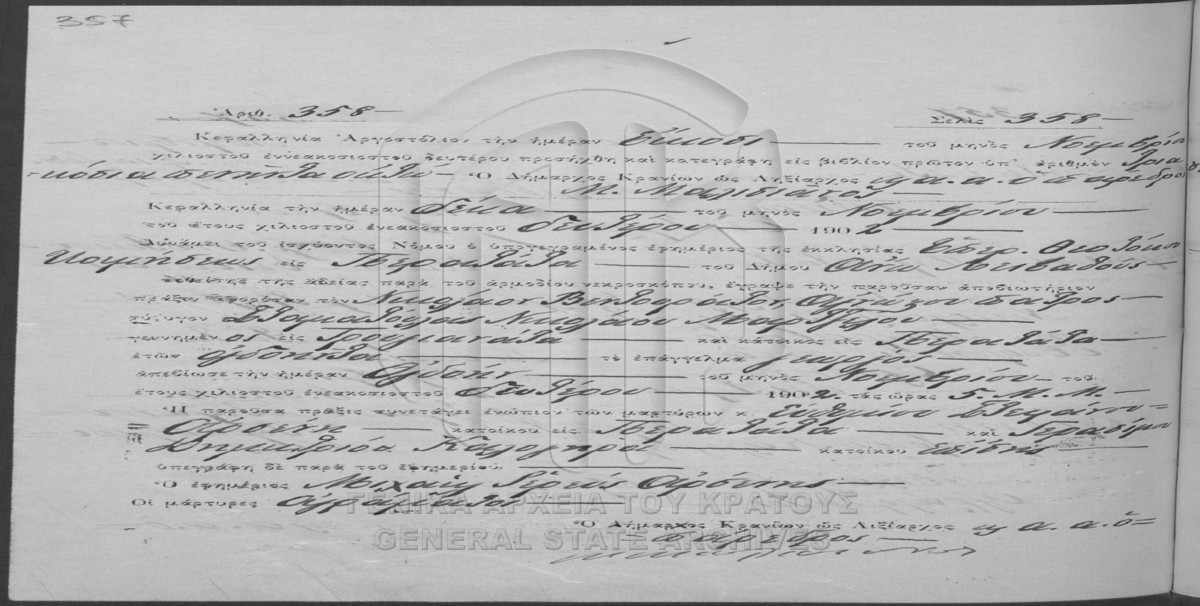 357
Ἀριθ. 358
Σελὶς 358
Κεφαλληνία Ἀργοστόλιον τὴν ἡμέραν Εἰκοστὴ τοῦ μηνὸς Νοεμβρίου
χιλιοστοῦ ἐννεακοσιοστοῦ δευτέρου προσήχθη καὶ κατεγράφη εἰς βιβλίον πρῶτον ὑπ' ἀριθμὸν τρια
κόσια πενῆντα οκτὼ Ὁ Δήμαρχος Κρανίων ὡς Ληξίαρχος κ. α. α. ὁ πάρεδρος
Κεφαλληνία τὴν ἡμέραν δέκα τοῦ μηνὸς Νοεμβρίου
τοῦ ἔτους χιλιοστοῦ ἐνεακοσιοστοῦ δευτέρου 1902
Δυνάμει τοῦ ἰσχύοντος Νόμου ὁ ὑπογεγραμένος ἐφημέριος τῆς ἐκκλησίας Ὑπερ. Θεοτόκου
Κοιμήσεως εἰς Περατάτα τοῦ Δήμου Λειβαθοῦς
δοθείσης τῆς ἀδείας παρὰ τοῦ ἁρμοδίου νεκροσκόπου, ἔγραψε τὴν παροῦσαν ἀποβιωτήριον
πρᾶξιν ἀφορῶσαν τὸν Νικόλαον πατρὸς
σύζυγον Σταματούλας Νικολάου
γεννημέν ος εἰς Τρωϊανάτα καὶ κάτοικος εἰς Περατάτα
ἐτῶν ὀγδοήντα τὸ ἐπάγγελμα γεωργὸς
ἀπεβίωσε τὴν ἡμέραν ὀγδόην τοῦ μηνὸς Νοεμβρίου τοῦ
ἔτους χιλιοστοῦ ἐνεακοσιοστοῦ δευτέρου 1902. τὰς ὥρας 5. Μ. Μ.
Ἡ παροῦσα πρᾶξις συνετάγει ἐνώπιον τῶν μαρτύρων κ. Εὐθυμίου Στεφάνου
Ἀρσένη κατοίκου εἰς Περατάτα καὶ Γερασίμου
Δημητρίου Καλογηρᾶ κατοίκου ἐπίσης
ὑπεγράφη δὲ παρὰ τοῦ ἐφημερίου.
Ὁ ἐφημέριος Μιχαὴλ Ἱερεὺς Ἀρσένης
Οἱ μάρτυρες
Ὁ Δήμαρχος Κρανίων ὡς Λιξίαρχος κ. α. α. ὁ
πάρεδρος
ΓΕΝΙΚΑ ΑΡΧΕΙΑ ΤΟΥ ΚΡΑΤΟΥΣ
GENERAL STATE ARCHIVES